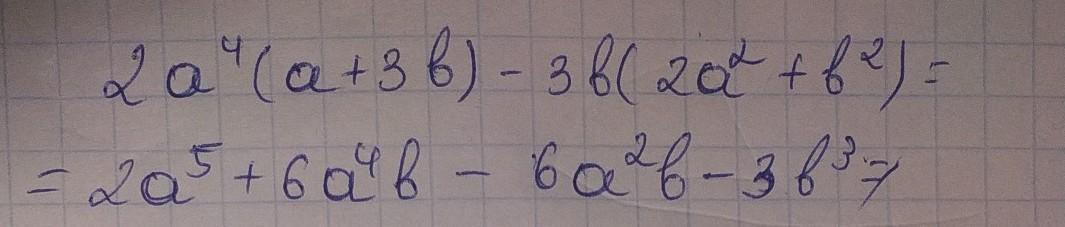 2a⁴(a+3b) - 3b(2a² + b²) =
= 2a⁵ + 6a⁴b - 6a²b - 3b³ =